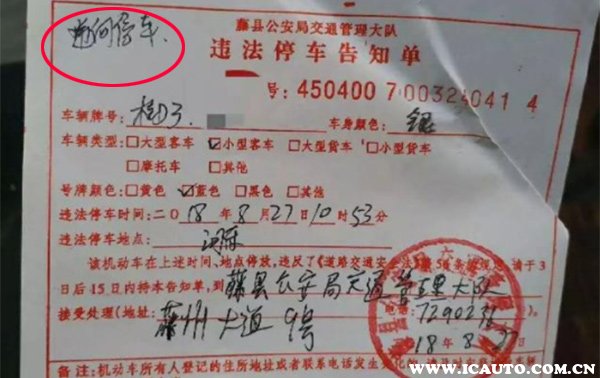 逆向停车.
藤县公安局交通管理大队
违法停车告知单
号: 450400 7 00324041 4
车辆牌号: 桂D 车身颜色: 银
车辆类型: □大型客车 ☑小型客车 □大型货车 □小型货车
□摩托车 □其他
号牌颜色: □黄色 ☑蓝色 □黑色 □其他
违法停车时间: 二〇18年8月27日10时53分
违法停车地点:
该机动车在上述时间、地点停放,违反了《道路交通安 请于3
日后15日内持本告知单,到藤县公安局交通管理大队
接受处理(地址: 藤州大道9号 电话: 7290231
18 8 27
备注:机动车所有人登记的住所地址或者联系电话发生变化的
WWW.ICAUTO.COM.CN